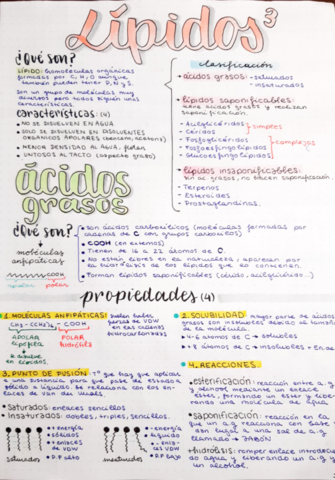 Lípidos³
¿Qué son?
LÍPIDO: biomoléculas orgánicas
formadas por C, H, O aunque
también pueden tener P, N, S.
Son un grupo de moléculas muy
diversas pero todas siguen unas
características.
características (4)
• NO SE DISUELVEN EN AGUA
• SOLO SE DISUELVEN EN DISOLVENTES
ORGÁNICOS APOLARES
• MENOR DENSIDAD AL AGUA, flotan
• UNTOSOS AL TACTO (aspecto graso)
clasificación
• ácidos grasos: - saturados
- insaturados
• lípidos saponificables:
saponificación.
- Acilglicéridos
- Céridos
simples
- Fosfoglicéridos
- Fosfoesfingolípidos
- Glucoesfingolípidos
complejos
• lípidos insaponificables:
sin ác grasos, no hacen saponificación.
- Terpenos
- Esteroides
- Prostaglandinas.
ácidos
grasos
¿Qué son?
moléculas
anfipáticas
COOH
apolar
polar
• Son ácidos carboxílicos (moléculas formadas por
cadenas de C con grupos carboxilos)
• COOH (en extremos)
• Tienen de 14 a 22 átomos de C.
• No están libres en la naturaleza, aparecen por
la hidrólisis de los lípidos que los contienen.
• Forman lípidos saponificables (cérido, acilglicérido..)
propiedades (4)
1. MOLÉCULAS ANFIPÁTICAS:
COOH
APOLAR
lipófila
POLAR
hidrófila
pueden haber
fuerzas de VDW
en las cadenas
hidrocarbonadas
2. SOLUBILIDAD: mayor parte de ácidos
grasos son insolubles debido al tamaño
de la molécula.
• 4-6 átomos de C → solubles
• +8 átomos de C → insolubles
3. PUNTO DE FUSIÓN: Tª que hay que aplicar
a una sustancia para que pase de estado
sólido a líquido
Saturados: enlaces sencillos
Insaturados: dobles, triples, sencillos.
+ energía
sólidos
+ enlaces
de VDW
P.F alto
saturados
- energía
líquido
- enlaces
de VDW
P.F bajo
insaturados
4. REACCIONES
• esterificación: reacción entre
y alcohol mediante un enlace
éster, formando un éster y liberando
una molécula de agua.
• saponificación: reacción en la
que un a.g reacciona con base
y da lugar a una sal de a.g
llamada → JABÓN
• hidrólisis: romper enlace introduciendo
agua y liberando un a.g y
un alcohol.